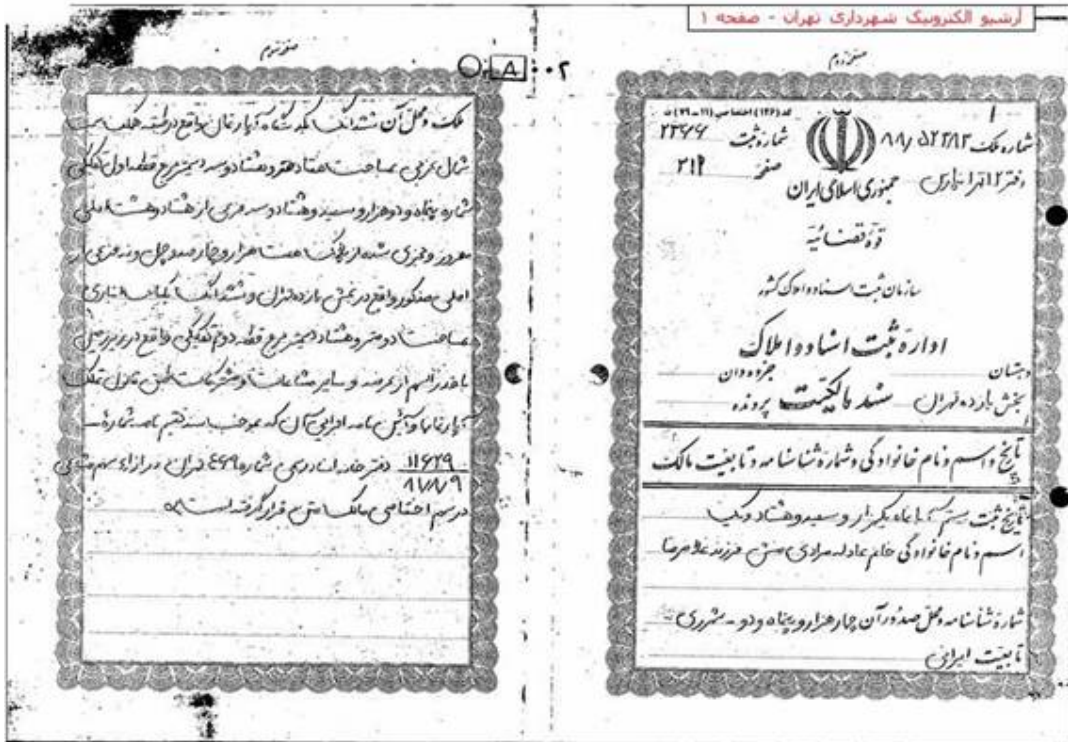 آرشیو الکترونیک شهرداری تهران - صفحه ۱
صفحه دوم
۱
کد (۱۳۶) اختصاصی (۱۱-۷۹) ث
شماره ملک ۸۸/۵۲۳۸۳
شماره ثبت ۲۳۶۶
دفتر ۱۲ صفحه ۲۱۹
جمهوری اسلامی ایران
قوه قضائیه
سازمان ثبت اسناد و املاک کشور
اداره ثبت اسناد و املاک
دهستان جزوه‌دان
بخش یازده تهران سند مالکیت پرونده
تاریخ و اسم و نام خانوادگی و شماره شناسنامه و تابعیت مالک
تاریخ ثبت ماه یکهزار و سیصد و هشتاد و یک
اسم و نام خانوادگی خانم عادله مرادی فرزند غلامرضا
شماره شناسنامه و محل صدور آن چهار هزار و پنجاه و دو - شهرری
تابعیت ایرانی
صفحه سوم
۸ ۰۰۲
ملک و محل آن ششدانگ یکدستگاه آپارتمان واقع در طبقه همکف سمت
شمال غربی بمساحت هفتاد متر و هشتاد و سه دسیمتر مربع قطعه اول تفکیکی
شماره پنجاه و دو هزار و سیصد و هشتاد و سه فرعی از هشتاد و هشت اصلی
مفروز و مجزی شده از پلاک هشت هزار و چهارصد و چهل و نه فرعی از
اصلی مذکور واقع در بخش یازده تهران و ششدانگ یکباب انباری
بمساحت دو متر و هشتاد دسیمتر مربع قطعه دوم تفکیکی واقع در زیرزمین
با قدرالسهم از عرصه و سایر مشاعات و مشترکات طبق قانون تملک
آپارتمانها و آئین نامه اجرایی آن که بموجب تقسیم نامه شماره
۱۱۶۲۹ دفترخانه اسناد رسمی شماره ۴۶۹ تهران در ازاء سهم مشاعی
۸۱/۸/۹
در سهم اختصاصی مالک متن قرار گرفته است